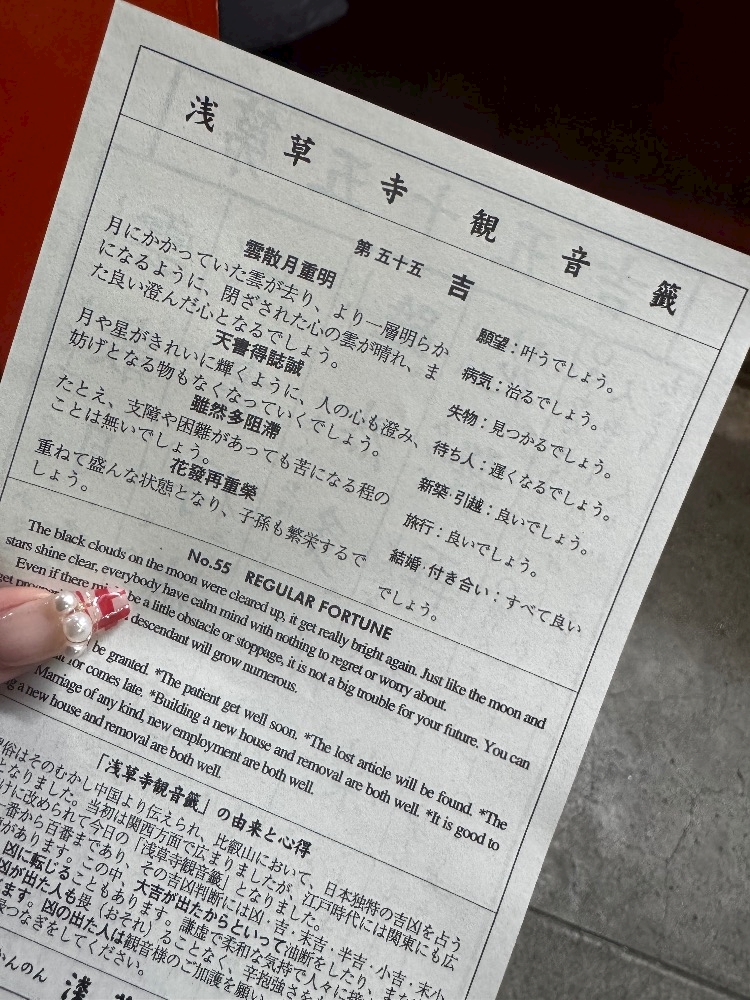 浅草寺観音籤
第五十五 吉
雲散月重明
月にかかっていた雲が去り、より一層明らか
になるように、閉ざされた心の雲が晴れ、ま
た良い澄んだ心となるでしょう。
天書得誌誠
月や星がきれいに輝くように、人の心も澄み、
妨げとなる物もなくなっていくでしょう。
雖然多阻滞
たとえ、支障や困難があっても苦になる程の
ことは無いでしょう。
花發再重榮
重ねて盛んな状態となり、子孫も繁栄するで
しょう。
願望:叶うでしょう。
病気:治るでしょう。
失物:見つかるでしょう。
待ち人:遅くなるでしょう。
新築·引越:良いでしょう。
旅行:良いでしょう。
結婚·付き合い:すべて良い
でしょう。
No.55 REGULAR FORTUNE
The black clouds on the moon were cleared up, it get really bright again. Just like the moon and
stars shine clear, everybody have calm mind with nothing to regret or worry about.
Even if there might be a little obstacle or stoppage, it is not a big trouble for your future. You can
get descendant will grow numerous.
be granted. *The patient get well soon. *The lost article will be found. *The
for comes late. *Building a new house and removal are both well. *It is good to
Marriage of any kind, new employment are both well.
a new house and removal are both well.
「浅草寺観音籤」の由来と心得
はそのむかし中国より伝えられ、比叡山において、日本独特の吉凶を占う
となりました。当初は関西方面で広まりましたが、江戸時代には関東にも広
けに改められて今日の「浅草寺観音籤」となりました。
一番から百番まであり、その吉凶判断には凶·吉·末吉·半吉·小吉·末小
があります。この中、大吉が出たからといって油断をしたり、また
凶に転じることもあります。謙虚で柔和な気持で人々に接
凶が出た人も畏(おそれ)ることなく、辛抱強さを
ます。凶の出た人は観音様のご加護を願い
つなぎをしてください。
かんのん